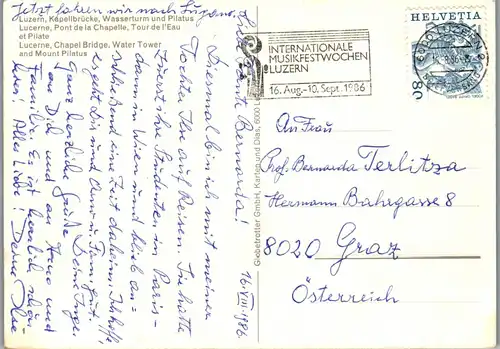 Jetzt fahren wir nach Lugano.
Luzern, Kapellbrücke, Wasserturm und Pilatus
Lucerne, Pont de la Chapelle, Tour de l'Eau
et Pilate
Lucerne, Chapel Bridge, Water Tower
and Mount Pilatus
16.VIII.1986
Bernarda!
Diesmal bin ich mit meiner
Tochter Ilse auf Reisen. Sie hatte
zuerst ihre Studenten in Paris-
dann in Wien und blieb an-
schließend eine Zeit daheim. Ich hoffe,
es geht Dir und Anno u. Fam. gut.
Ganz herzliche Grüße Deine Inge.
an Dich und an Anno und
Familie. Es ist herrlich schön
hier! Alles Liebe! Deine Ilse
Giebetrotter GmbH, Karten und Dias, 6000 Luzern
INTERNATIONALE
MUSIKFESTWOCHEN
LUZERN
16. Aug.-10. Sept. 1986
6000 LUZERN
HELVETIA
80
An Frau
Prof. Bernarda Terlitza
Hermann Bahrgasse 8
8020 Graz
Österreich